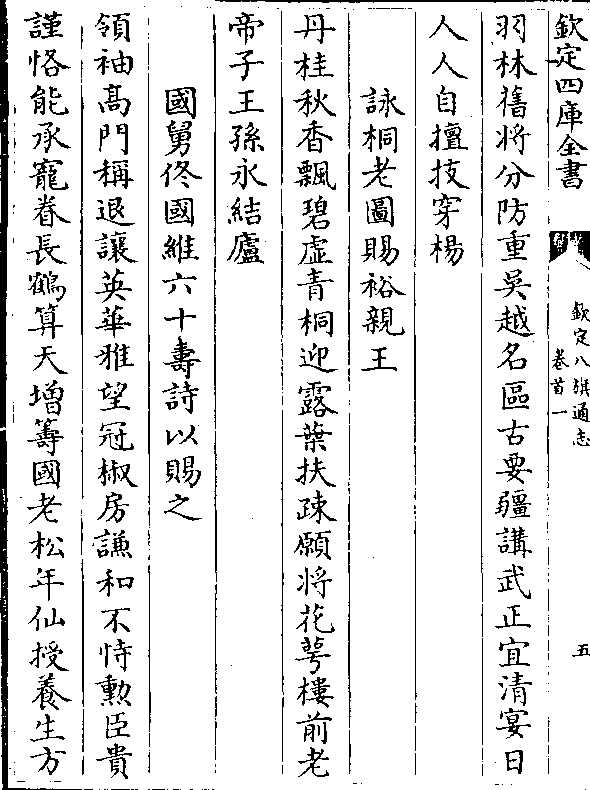 欽定四庫全書
欽定八旗通志
卷首一
五
羽林舊將分防重吳越名區古要疆講武正宜清宴日
人人自擅技穿楊
詠桐老圖賜裕親王
丹桂秋香飄碧虛青桐迎露葉扶疎願將花萼樓前老
帝子王孫永結廬
國舅佟國維六十壽詩以賜之
領袖高門稱退讓英華雅望冠椒房謙和不恃勲臣貴
謹恪能承寵眷長鶴算天增籌國老松年仙授養生方